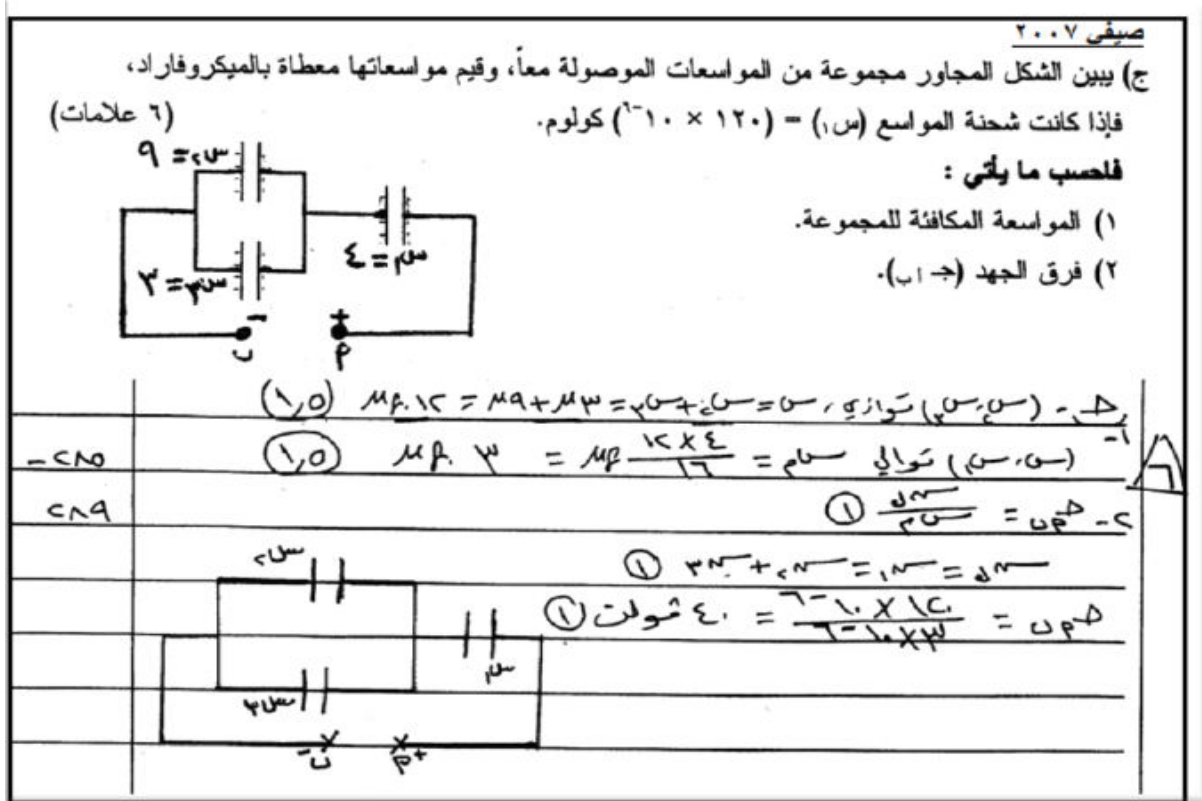 صيفي ٢٠٠٧
ج) يبين الشكل المجاور مجموعة من المواسعات الموصولة معاً، وقيم مواسعاتها معطاة بالميكروفاراد،
فإذا كانت شحنة المواسع (س١) = (١٢٠ × ١٠⁻٦) كولوم. (٦ علامات)
فاحسب ما يأتي :
١) المواسعة المكافئة للمجموعة.
٢) فرق الجهد (جـ أب).
س٢ = ٩
س١ = ٤
س٣ = ٣
+ −
أ ب
جـ١- (س٢، س٣) توازي، س = س٢ + س٣ = ٣μ + ٩μ = ١٢ μf (١,٥)
(س، س١) توالي سم = ٤×١٢/١٦ μf = ٣ μf (١,٥)
٢٨٥-
٦
٢- جـ أب = سـك/سم (١)
٢٨٩
سـك = سـ١ = سـ٢ + سـ٣ (١)
جـ أب = ١٢٠×١٠⁻٦/٣×١٠⁻٦ = ٤٠ ڤولت (١)
س٢
س١
س٣
أ+ ب-